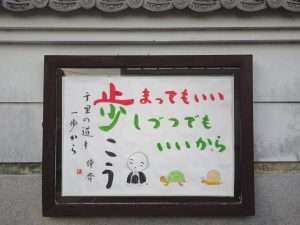 歩こう
まってもいい
しづつでも
いいから
千里の道も
一歩から